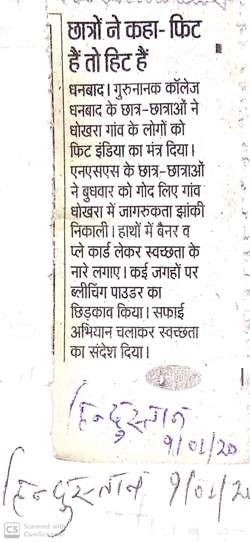 छात्रों ने कहा- फिट
हैं तो हिट हैं
धनबाद। गुरुनानक कॉलेज
धनबाद के छात्र-छात्राओं ने
धोखरा गांव के लोगों को
फिट इंडिया का मंत्र दिया।
एनएसएस के छात्र-छात्राओं
ने बुधवार को गोद लिए गांव
धोखरा में जागरुकता झांकी
निकाली। हाथों में बैनर व
प्ले कार्ड लेकर स्वच्छता के
नारे लगाए। कई जगहों पर
ब्लीचिंग पाउडर का
छिड़काव किया। सफाई
अभियान चलाकर स्वच्छता
का संदेश दिया।
हिन्दुस्तान
9/01/20
हिन्दुस्तान 9/01/20
CS Scanned with
CamScanner